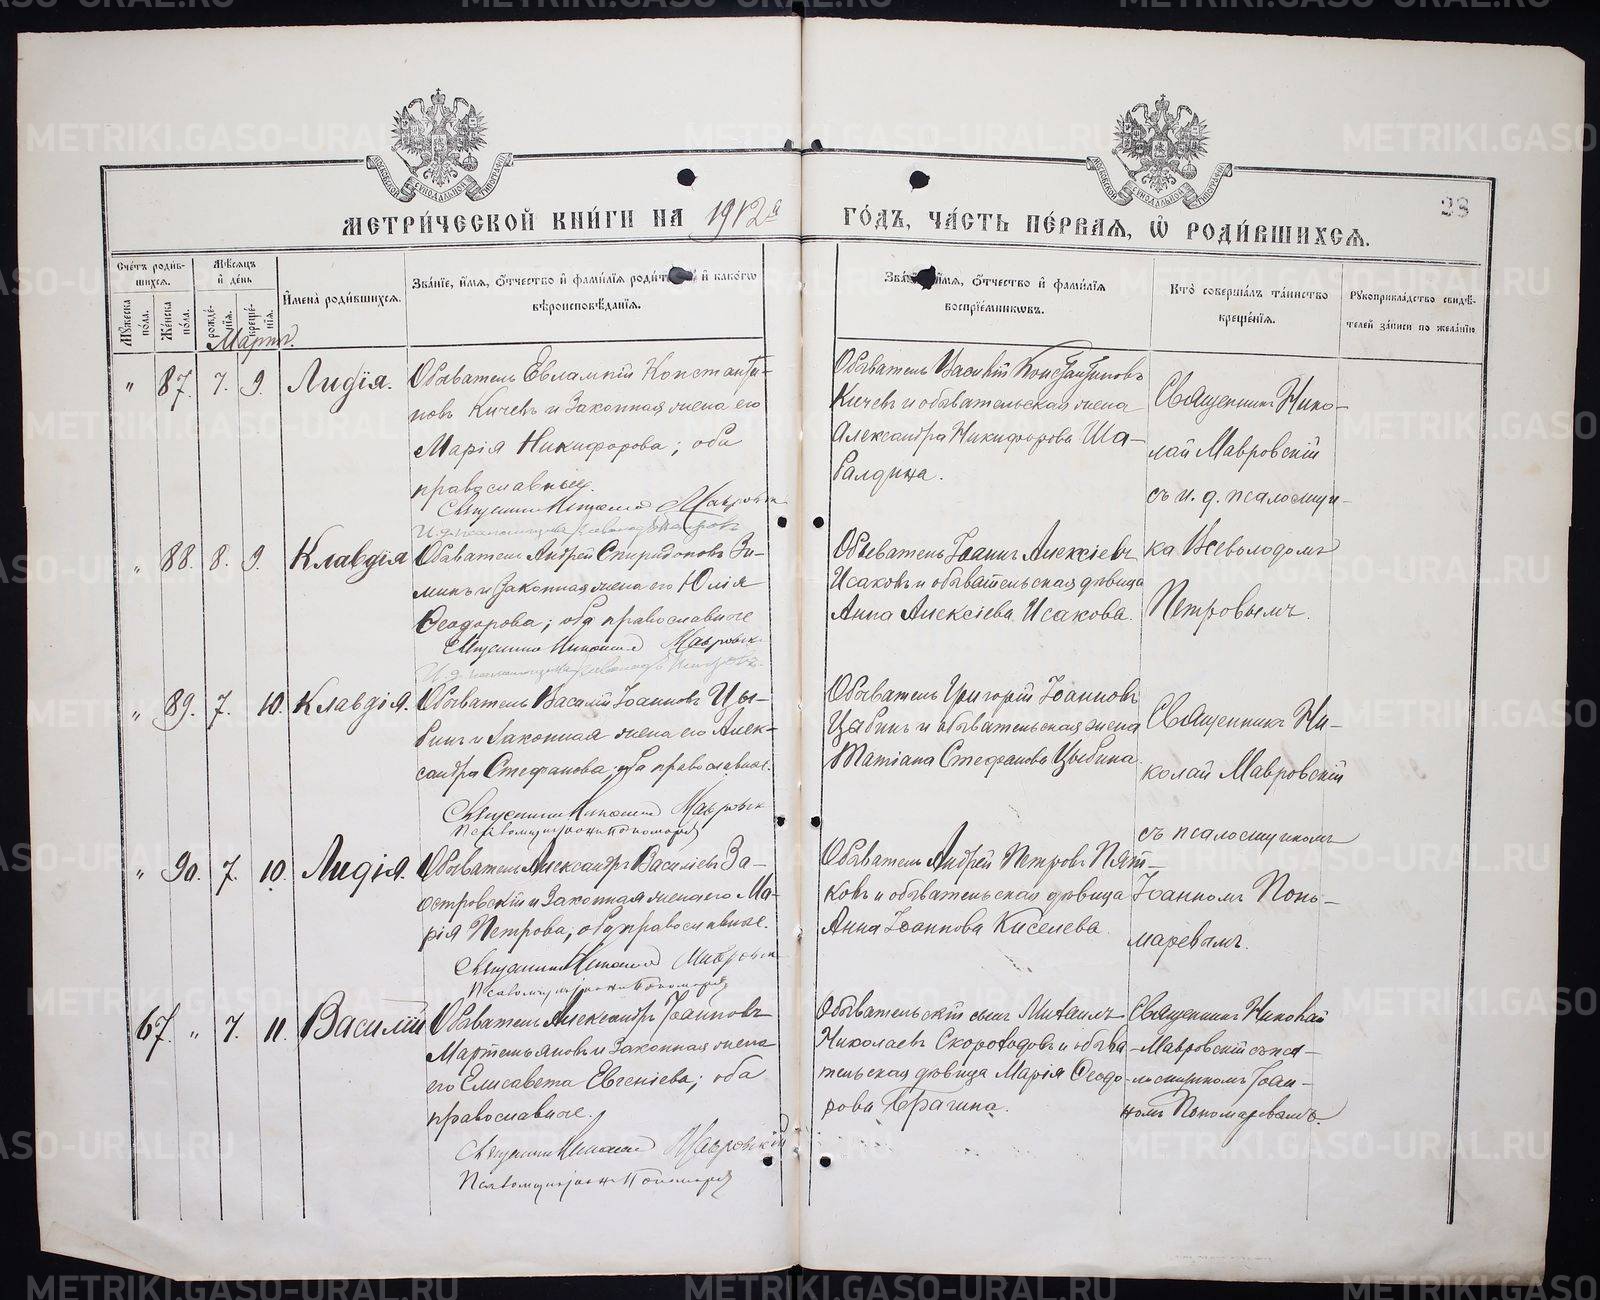 МЕТРИ́ЧЕСКОЙ КНИ́ГИ НА 1912 й
ГО́ДЪ, ЧА́СТЬ ПЕ́РВАЯ, Ѡ҆ РОДИ́ВШИХСЯ.
28
Сче́тъ роди́в-
шихся.
Мѣ́сяцъ
и҆ де́нь
Му́жеска по́ла.
Же́нска по́ла.
рожде́-нїя.
креще́-нїя.
И҆мена̀ роди́вшихся.
Зва́нїе, и҆́мя, ѻ҆́тчество и҆ фами́лїя роди́т и҆ како́гѡ
вѣ́роисповѣ́данїя.
Зва́ и҆́мя, ѻ҆́тчество и҆ фами́лїя
воспрїе́мникѡвъ.
Кто̀ соверша́лъ та́инство
креще́нїя.
Рꙋкоприкла́дство свидѣ́-
телей за́писи по жела́нїю
Мартъ
" 87. 7. 9. Лидія.
Обыватель Евлампій Константи-
новъ Кичевъ и законная жена его
Марія Никифорова; оба
православные.
Священникъ Николай Мавровск
Обыватель Василій Константиновъ
Кичевъ и обывательская жена
Александра Никифорова Ша-
балдина.
Священникъ Нико-
лай Мавровскій
съ и. д. псаломщи-
ка Всеволодомъ
Петровымъ.
" 88. 8. 9. Клавдія
Обыватель Андрей Спиридоновъ Зи-
минъ и законная жена его Юлія
Ѳеодорова; оба православные
Священникъ Николай Мавровск
Обыватель Іоаннъ Алексіевъ
Исаковъ и обывательская дѣвица
Анна Алексіева Исакова.
" 89. 7. 10. Клавдія.
Обыватель Василій Іоанновъ Цы-
бинъ и законная жена его Алек-
сандра Стефанова; оба православные.
Священникъ Николай Мавровск
Псаломщикъ Іоаннъ Пономарев
Обыватель Григорій Іоанновъ
Цыбинъ и обывательская жена
Татіана Стефанова Цыбина.
Священникъ Ни-
колай Мавровскій
съ псаломщикомъ
Іоанномъ Поно-
маревымъ.
" 90. 7. 10. Лидія.
Обыватель Александръ Васильевъ За-
островскій и законная жена его Ма-
рія Петрова; оба православные.
Священникъ Николай Мавровск
Псаломщикъ Іоаннъ Пономарев
Обыватель Андрей Петровъ Пят-
ковъ и обывательская дѣвица
Анна Іоаннова Киселева.
67. " 7. 11. Василій
Обыватель Александръ Іоанновъ
Мартемьяновъ и законная жена
его Елисавета Евгеніева; оба
православные.
Священникъ Николай Мавровскій
Псаломщикъ Іоаннъ Пономарев
Обывательскій сынъ Михаилъ
Николаевъ Скороходовъ и обыва-
тельская дѣвица Марія Ѳеодо-
рова Брагина.
Священникъ Николай
Мавровскій съ пса-
ломщикомъ Іоан-
номъ Пономаревымъ.
METRIKI.GASO-URAL.RU